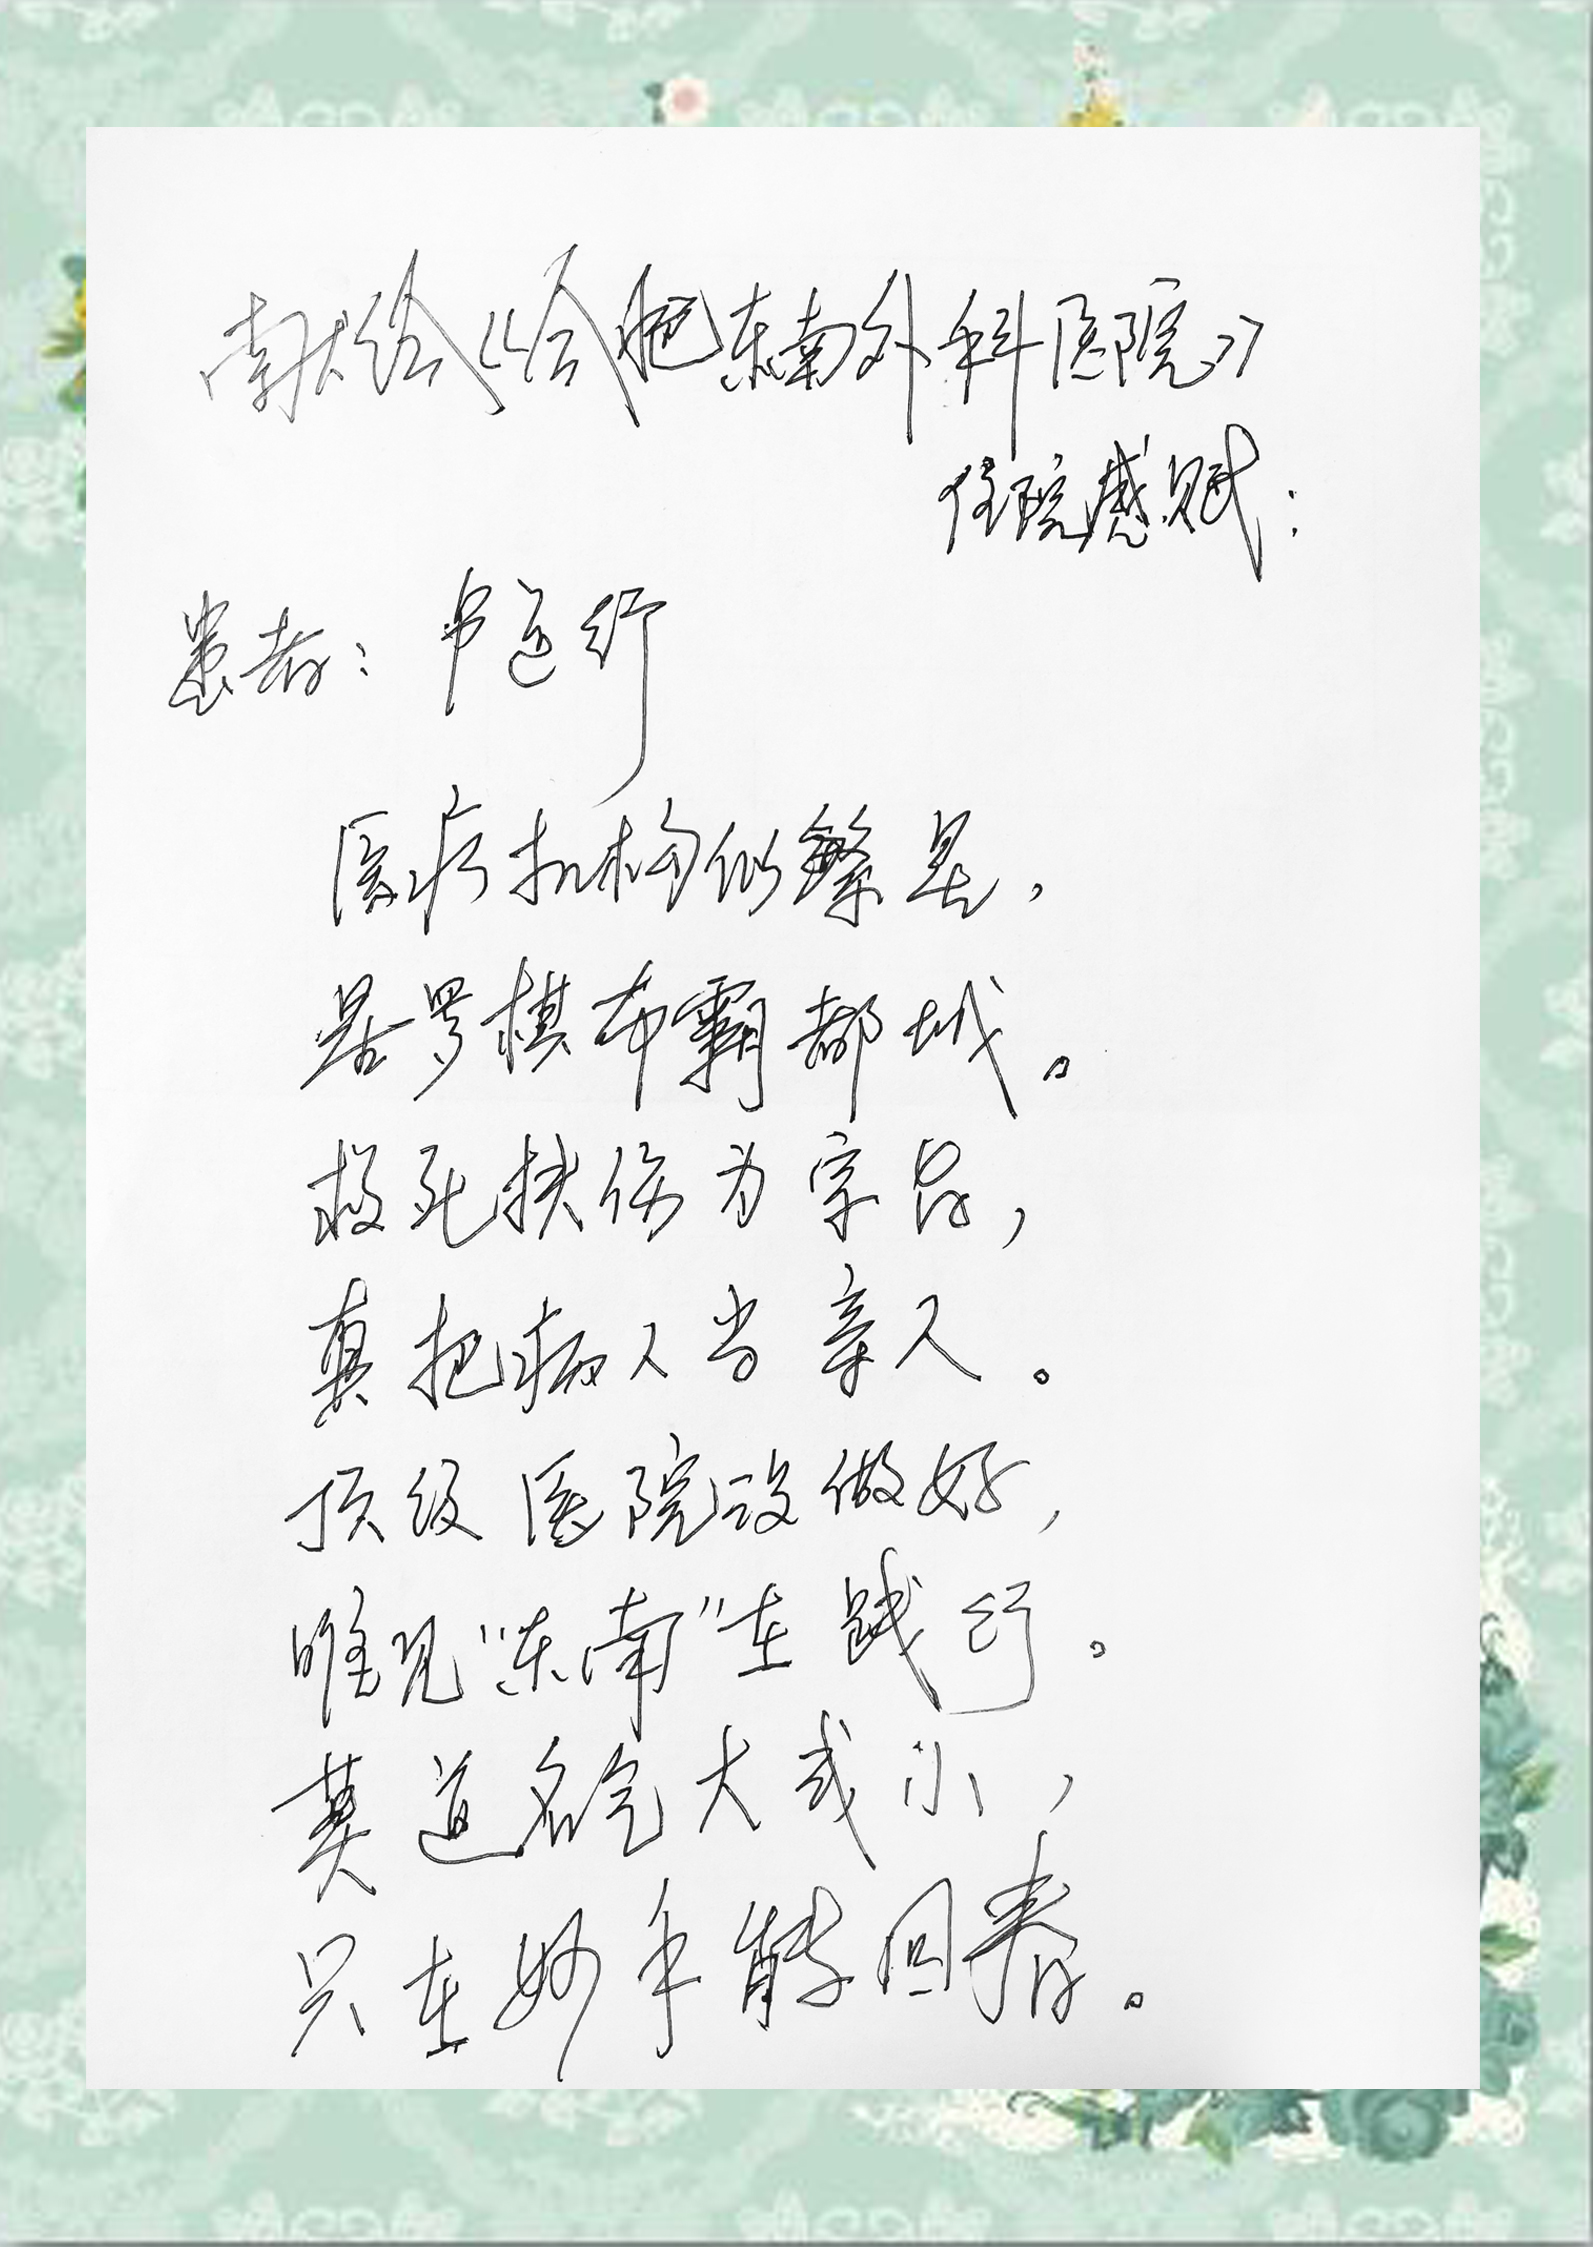 献给《合肥东南外科医院》
住院感赋:
患者:
医疗机构似繁星,
星罗棋布霸都城。
救死扶伤为宗旨,
真把病人当亲人。
顶级医院没做好,
唯见“东南”在践行。
莫道名气大或小,
只在妙手能回春。